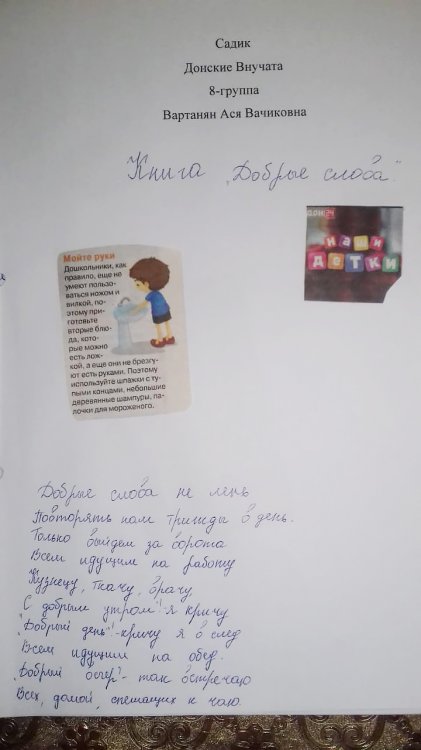 Садик
Донские Внучата
8-группа
Вартанян Ася Вачиковна
Книга „Добрые слова“
ДОН 24
наши
детки
Мойте руки
Дошкольники, как
правило, еще не
умеют пользо-
ваться ножом и
вилкой, по-
этому при-
готовьте
вторые блю-
да, кото-
рые можно
есть лож-
кой, а еще они не брезгу-
ют есть руками. Поэтому
используйте шпажки с ту-
пыми концами, небольшие
деревянные шампуры, па-
лочки для мороженого.
Добрые слова не лень
Повторять нам трижды в день.
Только выйдем за ворота
Всем идущим на работу
Кузнецу, ткачу, врачу
С добрым утром"! я кричу
„Добрый день"!-кричу я в след
Всем идущим на обед.
„Добрый вечер"- так встречаю
Всех, домой, спешащих к чаю.